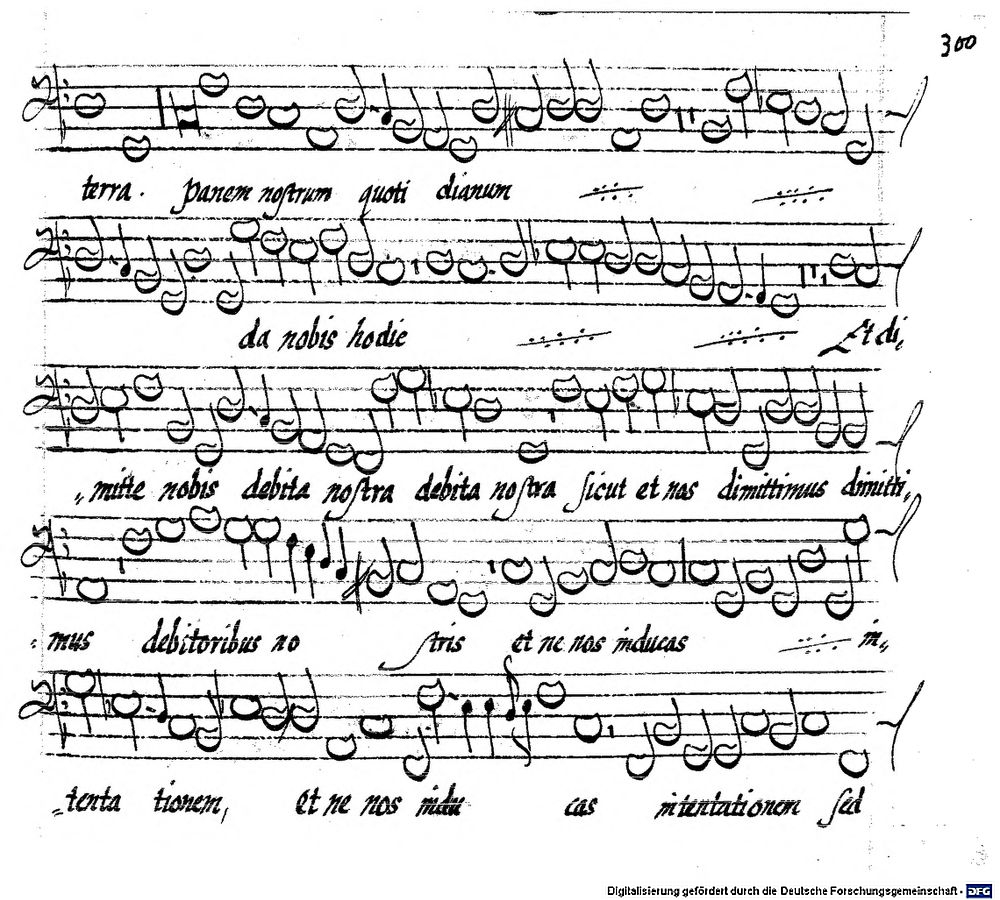 300
terra. panem nostrum quoti dianum
da nobis hodie Et di,
mitte nobis debita nostra debita nostra sicut et nos dimittimus dimitti,
mus debitoribus no stris et ne nos inducas in,,
tenta tionem, Et ne nos indu cas intentationem sed
Digitalisierung gefördert durch die Deutsche Forschungsgemeinschaft - DFG